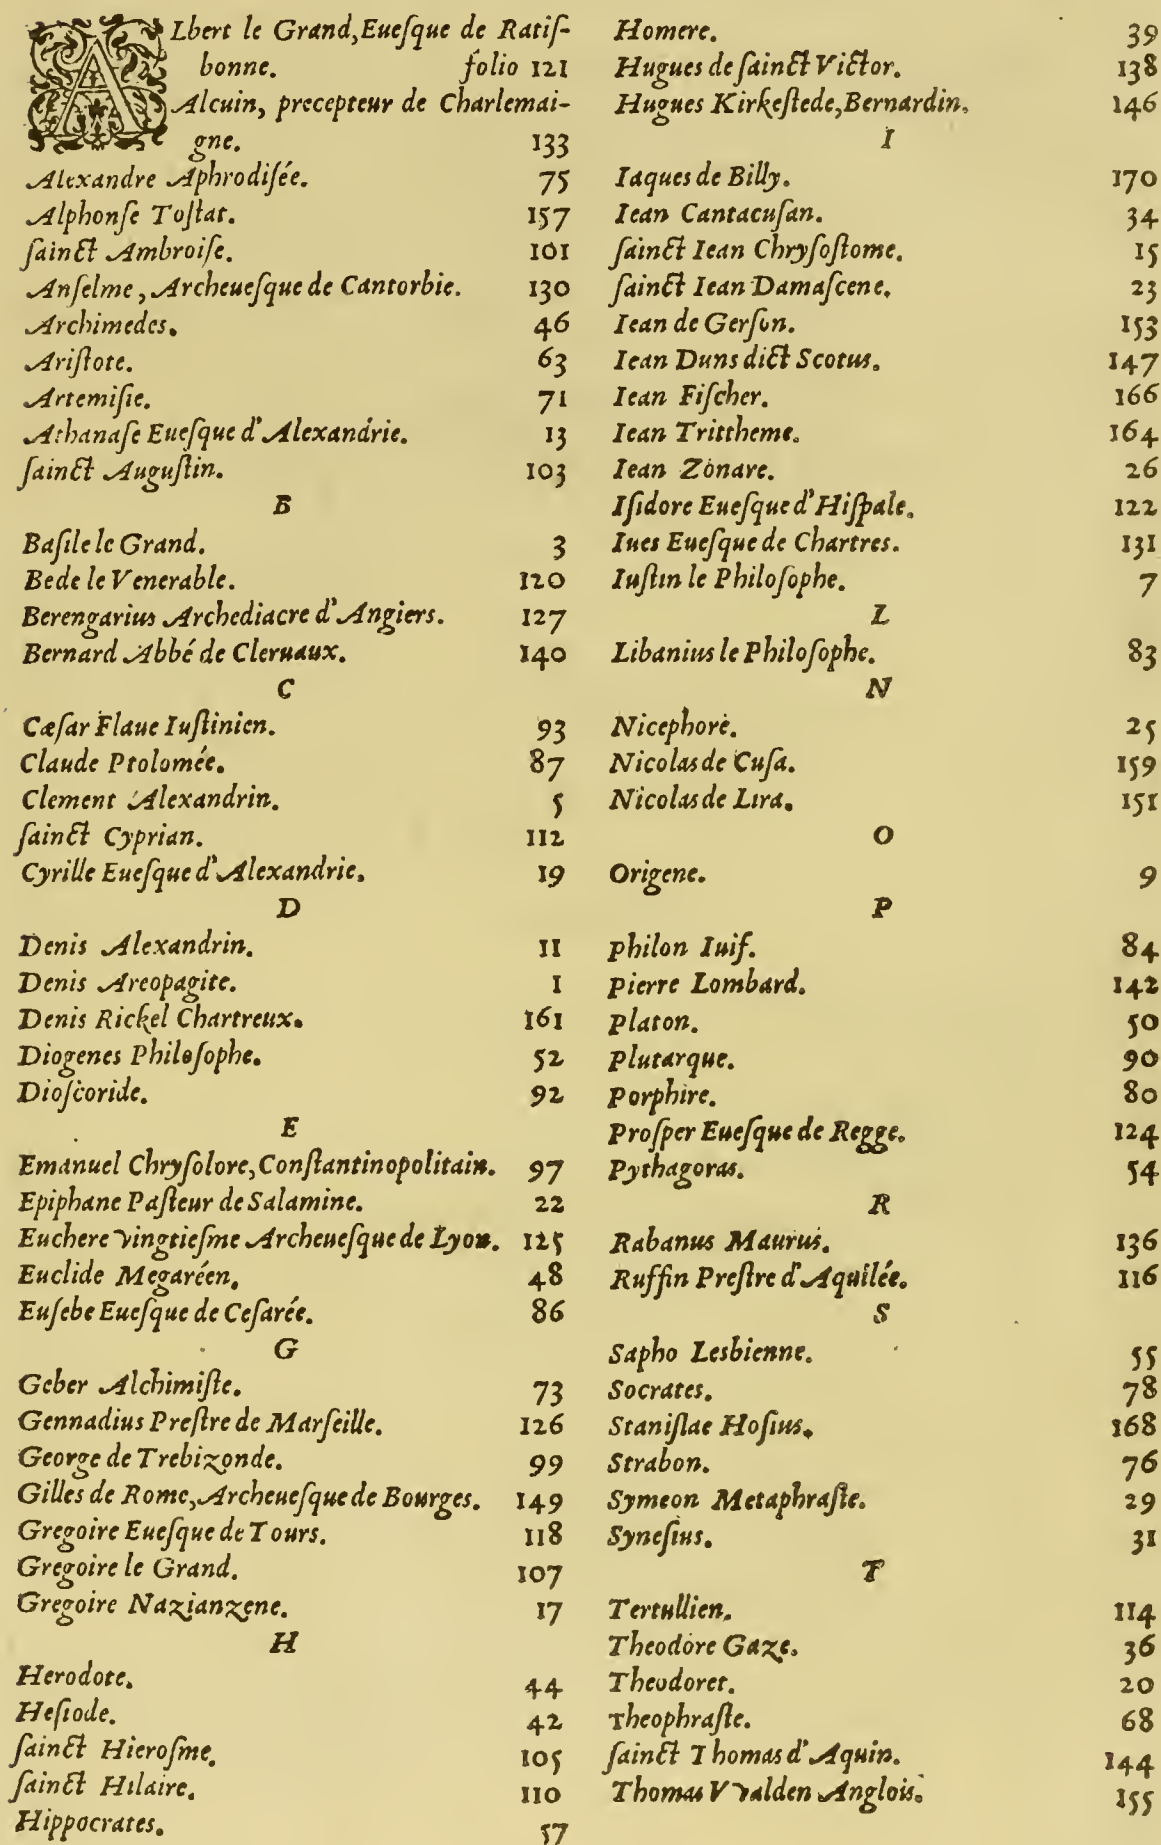 ALbert le Grand, Eueſque de Ratiſ-
bonne. folio 121
Alcuin, precepteur de Charlemai-
gne. 133
Alexandre Aphrodiſée. 75
Alphonſe Toſtat. 157
ſainct Ambroiſe. 101
Anſelme, Archeueſque de Cantorbie. 130
Archimedes. 46
Ariſtote. 63
Artemiſie. 71
Athanaſe Eueſque d'Alexandrie. 13
ſainct Auguſtin. 103
B
Baſile le Grand. 3
Bede le Venerable. 120
Berengarius Archediacre d'Angiers. 127
Bernard Abbé de Cleruaux. 140
C
Cæſar Flaue Iuſtinien. 93
Claude Ptolomée. 87
Clement Alexandrin. 5
ſainct Cyprian. 112
Cyrille Eueſque d'Alexandrie. 19
D
Denis Alexandrin. 11
Denis Areopagite. 1
Denis Rickel Chartreux. 161
Diogenes Philoſophe. 52
Dioſcoride. 92
E
Emanuel Chryſolore, Conſtantinopolitain. 97
Epiphane Paſteur de Salamine. 22
Euchere vingtieſme Archeueſque de Lyon. 125
Euclide Megaréen. 48
Euſebe Eueſque de Ceſarée. 86
G
Geber Alchimiſte. 73
Gennadius Preſtre de Marſeille. 126
George de Trebizonde. 99
Gilles de Rome, Archeueſque de Bourges. 149
Gregoire Eueſque de Tours. 118
Gregoire le Grand. 107
Gregoire Nazianzene. 17
H
Herodote. 44
Heſiode. 42
ſainct Hieroſme. 105
ſainct Hilaire. 110
Hippocrates. 57
Homere. 39
Hugues de ſainct Victor. 138
Hugues Kirkeſtede, Bernardin. 146
I
Iaques de Billy. 170
Iean Cantacuſan. 34
ſainct Iean Chryſoſtome. 15
ſainct Iean Damaſcene. 23
Iean de Gerſon. 153
Iean Duns dict Scotus. 147
Iean Fiſcher. 166
Iean Trittheme. 164
Iean Zonare. 26
Iſidore Eueſque d'Hiſpale. 122
Iues Eueſque de Chartres. 131
Iuſtin le Philoſophe. 7
L
Libanius le Philoſophe. 83
N
Nicephore. 25
Nicolas de Cuſa. 159
Nicolas de Lira. 151
O
Origene. 9
P
Philon Iuif. 84
Pierre Lombard. 142
Platon. 50
Plutarque. 90
Porphire. 80
Proſper Eueſque de Regge. 124
Pythagoras. 54
R
Rabanus Maurus. 136
Ruffin Preſtre d'Aquilée. 116
S
Sapho Lesbienne. 55
Socrates. 78
Staniſlae Hoſius. 168
Strabon. 76
Symeon Metaphraſte. 29
Syneſius. 31
T
Tertullien. 114
Theodore Gaze. 36
Theodoret. 20
Theophraſte. 68
ſainct Thomas d'Aquin. 144
Thomas VValden Anglois. 155